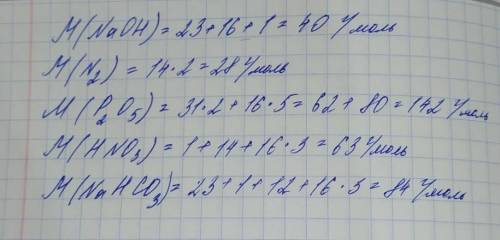 M(NaOH) = 23+16+1 = 40 г/моль
M(N₂) = 14·2 = 28 г/моль
M(P₂O₅) = 31·2+16·5 = 62+80 = 142 г/моль
M(HNO₃) = 1+14+16·3 = 63 г/моль
M(NaHCO₃) = 23+1+12+16·3 = 84 г/моль